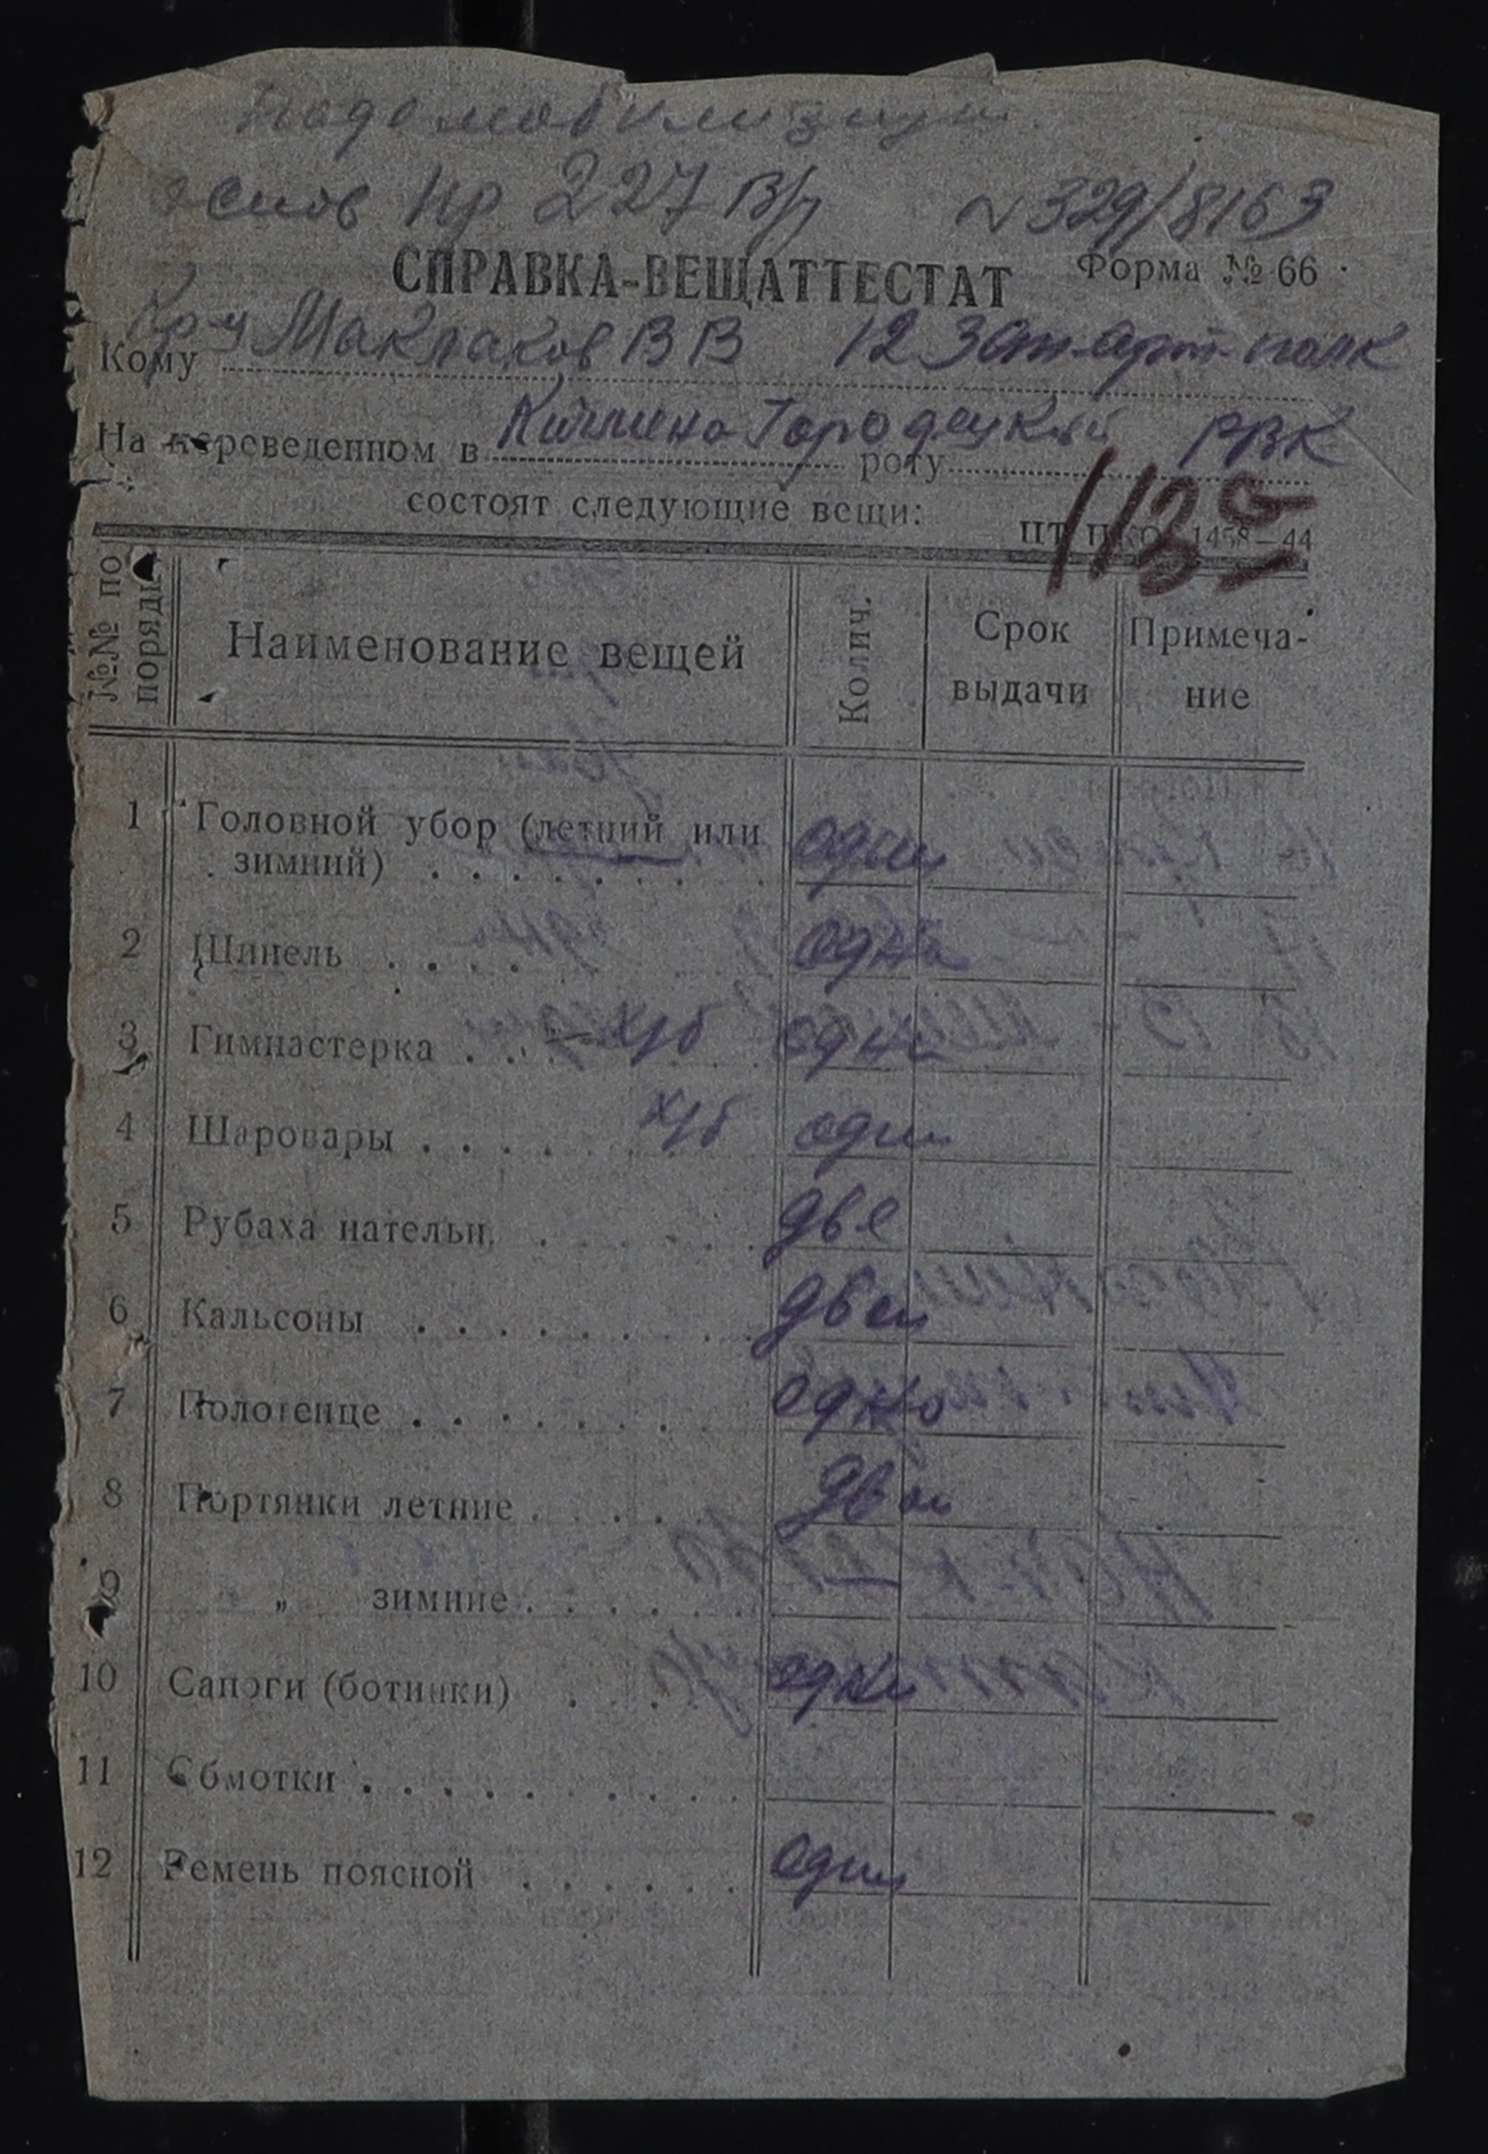 Подемобилизации
основ Пр 227 В/ч N 329/8163
СПРАВКА-ВЕЩАТТЕСТАТ Форма № 66
Кому Кр-ц Маклаков В В 12 Зап. арт. полк
На переведенном в Кичмено Городецкий роту РВК
состоят следующие вещи:
ПТ НКО 1458—44
113
№№ по порядк. Наименование вещей Колич. Срок выдачи Примеча-ние
1 Головной убор (летний или зимний) один
2 Шинель одна
3 Гимнастерка х/б одна
4 Шаровары х/б одни
5 Рубаха нательн. две
6 Кальсоны двои
7 Полотенце одно
8 Портянки летние двои
9 „ зимние
10 Сапоги (ботинки) одни
11 Обмотки
12 Ремень поясной один